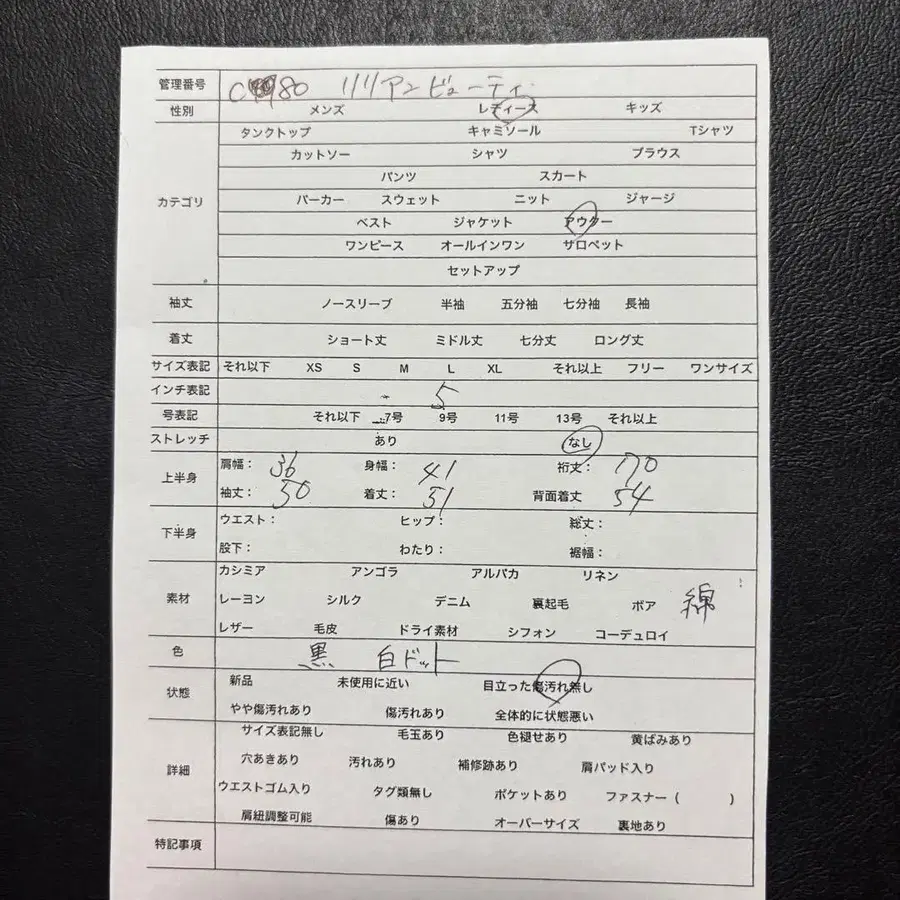 管理番号 C 80 リリアンビューティ
性別 メンズ レディース キッズ
タンクトップ キャミソール Tシャツ
カットソー シャツ ブラウス
パンツ スカート
カテゴリ パーカー スウェット ニット ジャージ
ベスト ジャケット アウター
ワンピース オールインワン サロペット
セットアップ
袖丈 ノースリーブ 半袖 五分袖 七分袖 長袖
着丈 ショート丈 ミドル丈 七分丈 ロング丈
サイズ表記 それ以下 XS S M L XL それ以上 フリー ワンサイズ
インチ表記 5
号表記 それ以下 7号 9号 11号 13号 それ以上
ストレッチ あり なし
上半身 肩幅: 36 身幅: 41 裄丈: 70
袖丈: 50 着丈: 51 背面着丈 54
下半身 ウエスト: ヒップ: 総丈:
股下: わたり: 裾幅:
カシミア アンゴラ アルパカ リネン
素材 レーヨン シルク デニム 裏起毛 ボア 綿
レザー 毛皮 ドライ素材 シフォン コーデュロイ
色 黒 白ドット
状態 新品 未使用に近い 目立った傷汚れ無し
やや傷汚れあり 傷汚れあり 全体的に状態悪い
サイズ表記無し 毛玉あり 色褪せあり 黄ばみあり
詳細 穴あきあり 汚れあり 補修跡あり 肩パッド入り
ウエストゴム入り タグ類無し ポケットあり ファスナー ( )
肩紐調整可能 傷あり オーバーサイズ 裏地あり
特記事項